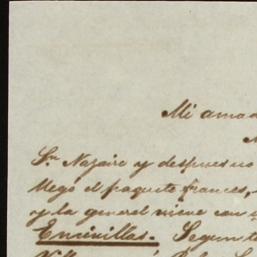 Mi amad
Sn. Nazaire y despues no
llegó el paquete frances,
y la general viene con
Encinillas. Segun te